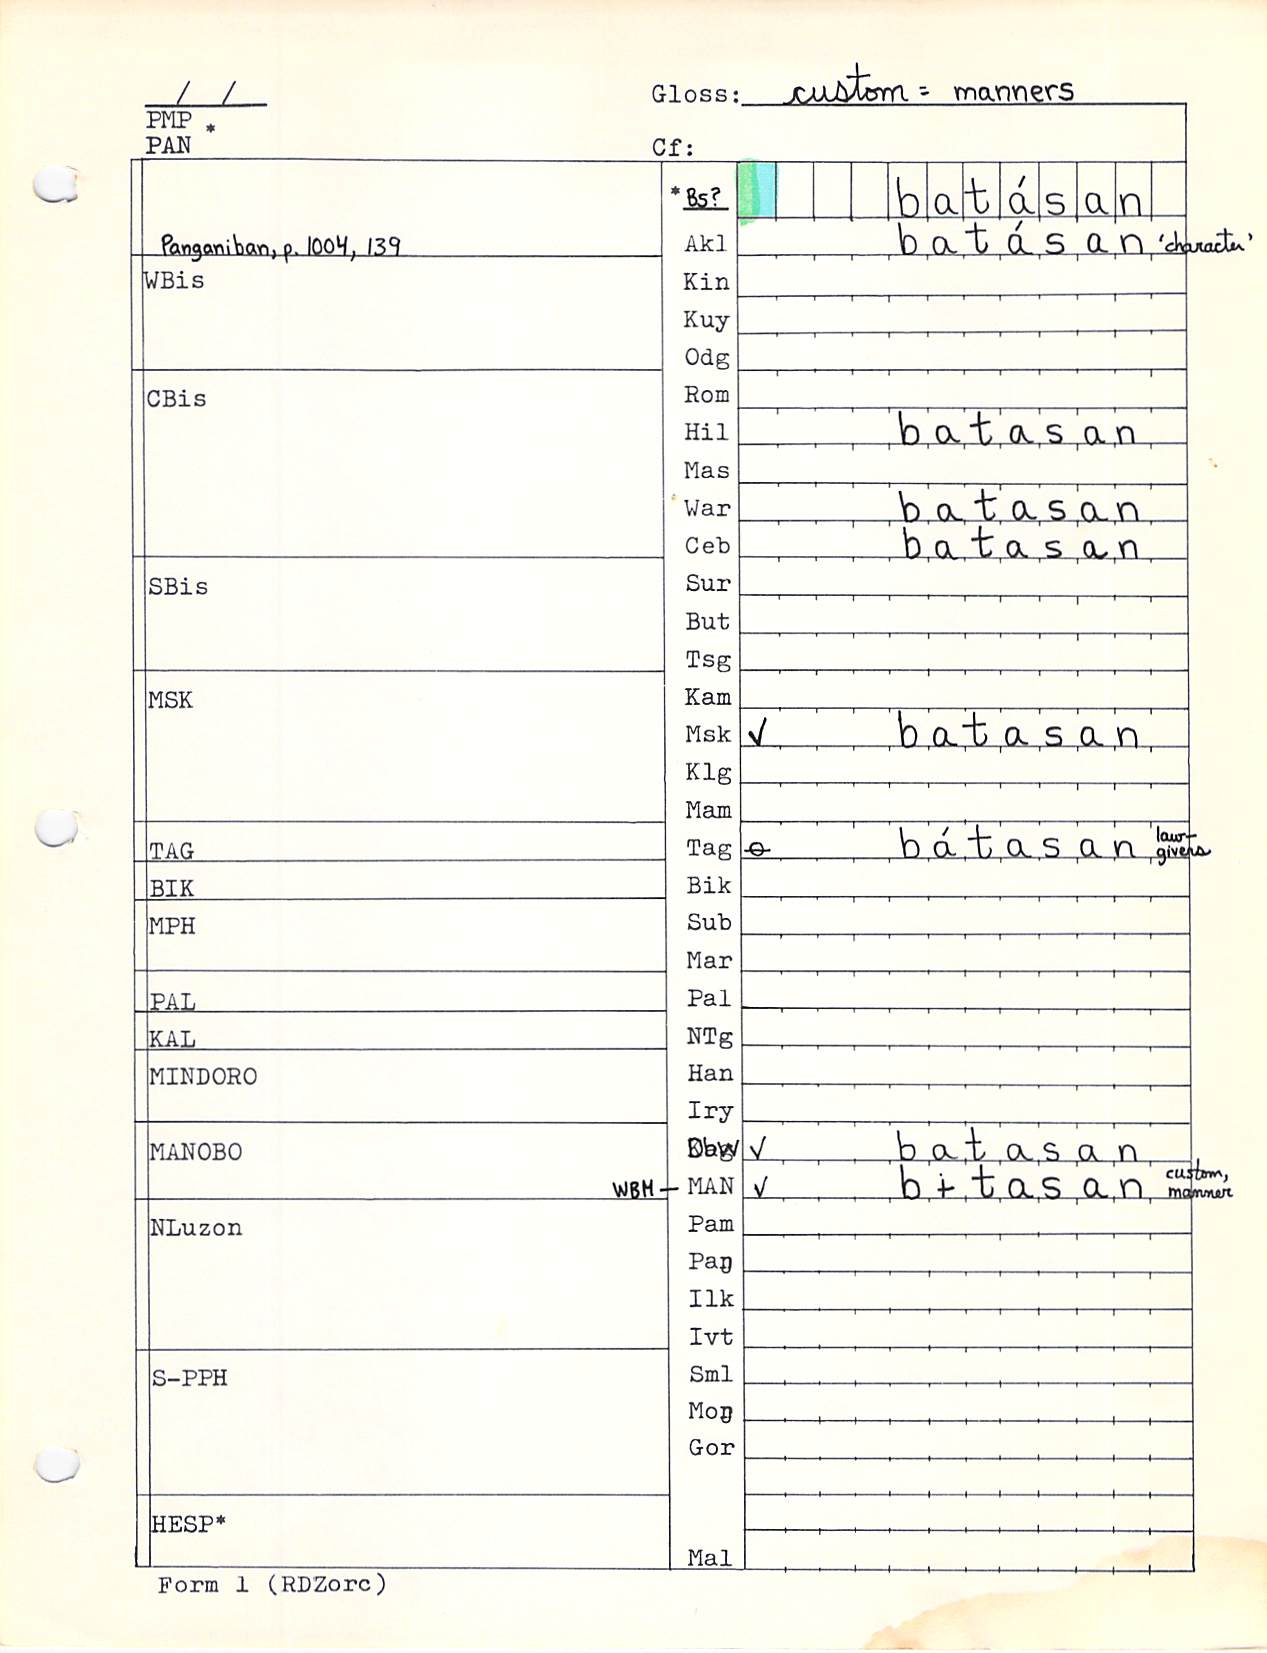 / /
Gloss: custom = manners
PMP *
PAN
Cf:
*Bs? batásan
Panganiban, p. 1004, 139
Akl batásan 'character'
WBis
Kin
Kuy
Odg
CBis
Rom
Hil batasan
Mas
War batasan
Ceb batasan
SBis
Sur
But
Tsg
MSK
Kam
Msk ✓ batasan
Klg
Mam
TAG
Tag ɵ bátasan law-givers
BIK
Bik
MPH
Sub
Mar
PAL
Pal
KAL
NTg
MINDORO
Han
Iry
MANOBO
✓ batasan
WBM – MAN ✓ bɨtasan custom, manner
NLuzon
Pam
Paŋ
Ilk
Ivt
S-PPH
Sml
Moŋ
Gor
HESP*
Mal
Form 1 (RDZorc)